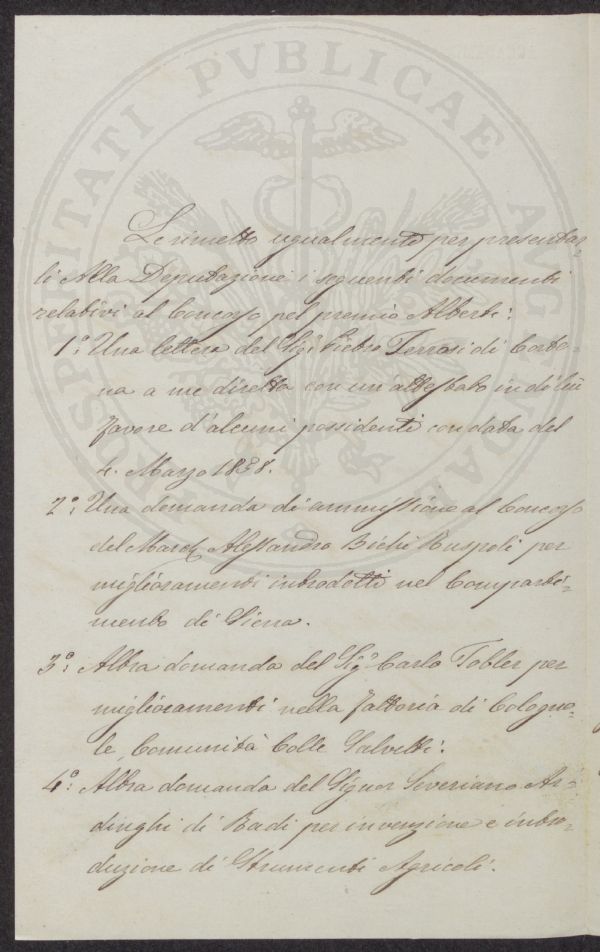 PROSPERITATI PVBLICAE AVGENDAE
Le rimetto ugualmente per presentar=
li alla Deputazione i seguenti documenti
relativi al Concorso pel premio Alberti:
1.° Una lettera del Sig.r Pietro Ferrosi di Corto=
na a me diretta con un'attestato in di lui
favore d'alcuni possidenti con data del
4. Marzo 1838.
2.° Una domanda di ammissione al Concorso
del March. Alessandro Bichi Ruspoli per
miglioramenti introdotti nel Comparti=
mento di Siena.
3.° Altra domanda del Sig.r Carlo Tobler per
miglioramenti nella fattoria di Cologno=
le, Comunità Colle Salvetti.
4.° Altra domanda del Signor Severiano Ar=
dinghi di Badi per invenzione e intro=
duzione di Strumenti Agricoli.